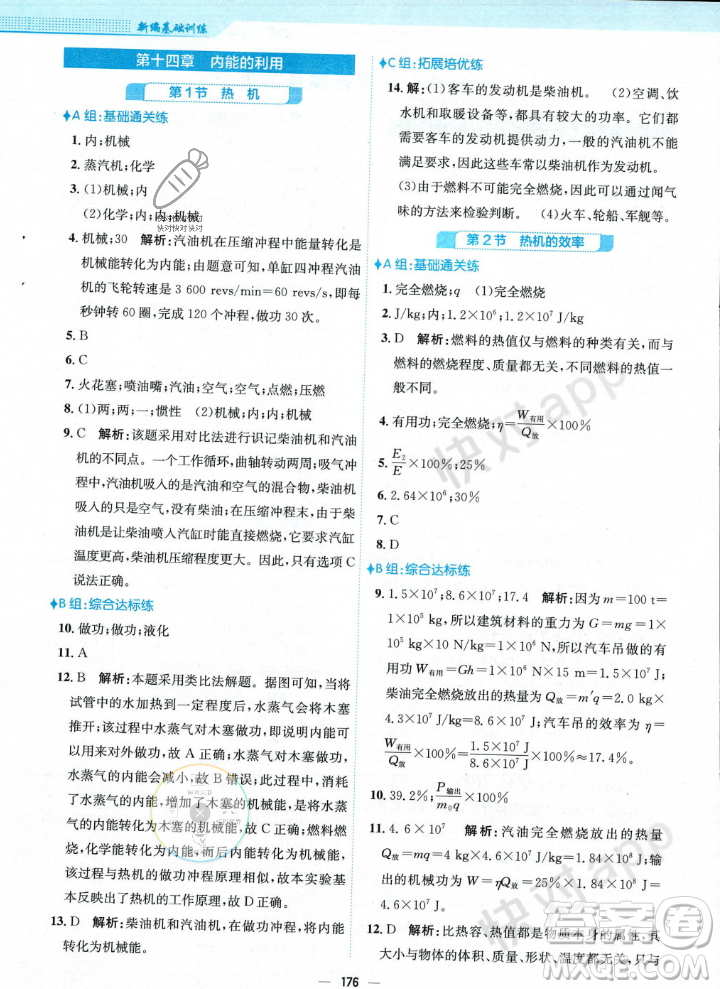 新编基础训练
第十四章 内能的利用
第1节 热 机
A组:基础通关练
1. 内;机械
2. 蒸汽机;化学
3. (1)机械;内
(2)化学;内;内;机械
4. 机械;30 解析:汽油机在压缩冲程中能量转化是
机械能转化为内能;由题意可知,单缸四冲程汽油
机的飞轮转速是3 600 revs/min=60 r/s,即每
秒钟转60圈,完成120个冲程,做功30次。
5. B
6. C
7. 火花塞;喷油嘴;汽油;空气;空气;点燃;压燃
8. (1)两;两;一;惯性 (2)机械;内;内;机械
9. C 解析:该题采用对比法进行识记柴油机和汽油
机的不同点。一个工作循环,曲轴转动两周;吸气冲
程中,汽油机吸入的是汽油和空气的混合物,柴油
机吸入的只有空气;在压缩冲程末,由于柴
油机是让柴油喷入汽缸时能直接燃烧,它要求空气
温度更高,柴油机压缩程度更大。所以,只有选项C
说法正确。
B组:综合达标练
10. 做功;做功;液化
11. A
12. B 解析:本题采用类比法解题。据图可知,当将
试管中的水加热到一定程度后,水蒸气会将木塞
推开;该过程中水蒸气对木塞做功,即说明内能可
以对外做功,故A正确;水蒸气对木塞做功,水蒸
气的内能会减小,故B错误;此过程中,消耗
了水蒸气的内能,增加了木塞的机械能,所以是水
蒸气的内能转化为木塞的机械能,故C正确;燃料燃
烧,化学能转化为内能,而后内能转化为机械能,
该过程与热机的工作过程原理相同,故本实验基
本反映出了热机的工作原理,故D正确。
13. D 解析:柴油机和汽油机,在做功冲程都是内能转
化为机械能。
C组:拓展培优练
14. 解:(1)客车的发动机是柴油机。(2)空调、饮
水机和取暖设备等,都由发动机提供能量。它们
需要客车的发动机提供动力,一般的汽油机功率
比柴油机小,所以大型客车以柴油机作为发动机。
(3)由于燃料不可能完全燃烧,所以可以通过闻气
味的方法来检验判断。(4)火车、轮船、军舰等。
第2节 热机的效率
A组:基础通关练
1. 完全燃烧;q (1)完全燃烧
2. J/kg;内;1.2×10⁶;1.2×10⁷ J/kg
3. D 解析:燃料的热值仅与燃料的种类有关,而与
燃料的燃烧程度、质量都无关,不同燃料的热值一
般不同。
4. 有用功;完全燃烧;η=W有用/Q放×100%
5. E₂/E×100%;25%
6. 2.64×10⁶;30%
7. C
8. D
B组:综合达标练
9. 1.5×10⁷;8.6×10⁷;17.4 解析:因为m=100 t=
1×10⁵ kg,所以建筑材料的重力为G=mg=1×
10⁵ kg×10 N/kg=1×10⁶ N,所以汽车吊做的有用
功W有用=Gh=1×10⁶ N×15 m=1.5×10⁷ J;
柴油完全燃烧放出的热量Q放=m′q=2.0 kg
×4.3×10⁷ J/kg=8.6×10⁷ J;汽车吊的效率η=
W有用/Q放×100%=1.5×10⁷ J/8.6×10⁷ J×100%≈17.4%。
10. 39.2%;P输出/m₀q×100%
11. 4.6×10⁷ 解析:汽油完全燃烧放出的热量
12. D 解析:比热容、热值都是物质本身的属性,其
大小与物体的体积、质量、形状、温度都无关,只与
176
快对app
快对app
快对快对快对
答案圈
MXQE.COM